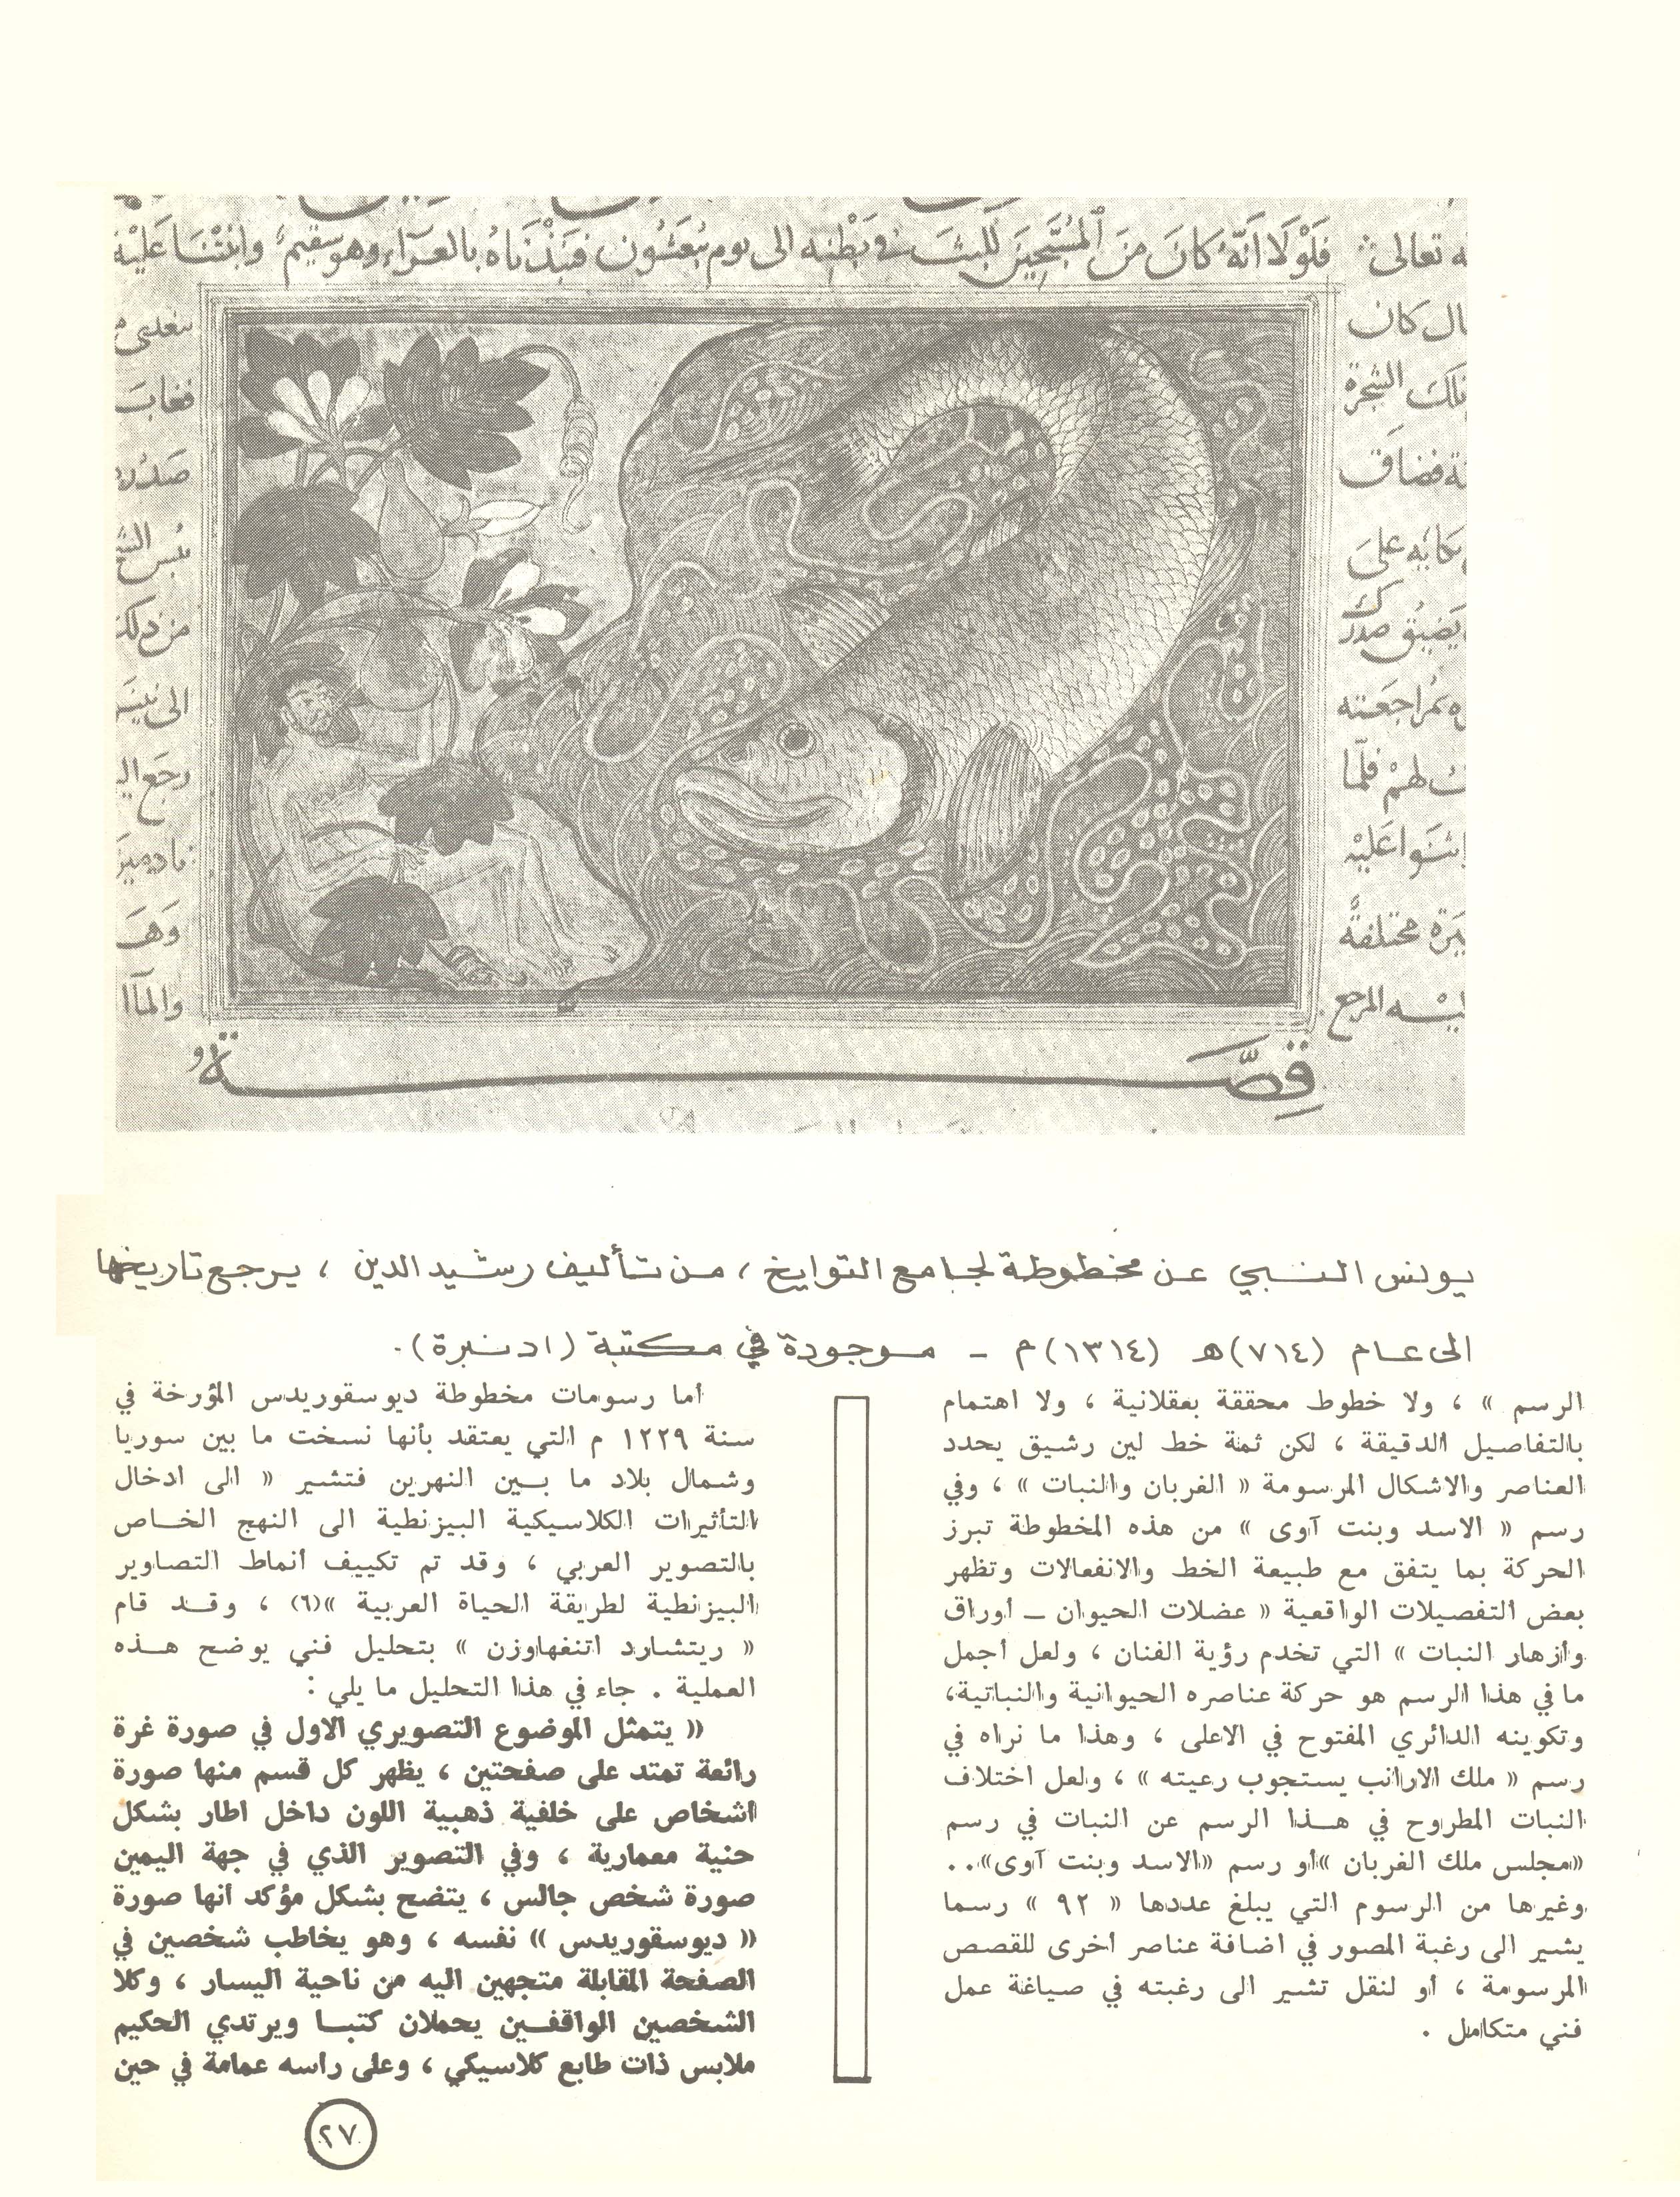 ه تعالى فَلَوْلَا انَّهُ كَانَ مِنَ الْمُسَبِّحِينَ لَلبثَ في بَطْنِه الى يوم يُبعَثُون فنَبَذْنَاهُ بالعَرَاء وهو سقيم وانبتْنَا عَلَيْه
ال كان
تلك الشجرة
فضاق
على
يضيق صدرك
بمُراجَعَته
لهمْ فلمّا
عَلَيْه
مختلفةً
المرجع
فغابَ
من ذلك
رجَع
وَهَ
قصَّة
يونس النبي عن مخطوطة لجامع التواريخ ، من تأليف رشيد الدين ، يرجع تاريخها
الى عام (٧١٤)هـ (١٣١٤)م – موجودة في مكتبة (ادنبرة).
الرسم » ، ولا خطوط محققة بعقلانية ، ولا اهتمام
بالتفاصيل الدقيقة ، لكن ثمة خط لين رشيق يحدد
العناصر والاشكال المرسومة « الغربان والنبات » ، وفي
رسم « الاسد وبنت آوى » من هذه المخطوطة تبرز
الحركة بما يتفق مع طبيعة الخط والانفعالات وتظهر
بعض التفصيلات الواقعية « عضلات الحيوان – أوراق
وأزهار النبات » التي تخدم رؤية الفنان ، ولعل أجمل
ما في هذا الرسم هو حركة عناصره الحيوانية والنباتية،
وتكوينه الدائري المفتوح في الاعلى ، وهذا ما نراه في
رسم « ملك الارانب يستجوب رعيته » ، ولعل اختلاف
النبات المطروح في هذا الرسم عن النبات في رسم
«مجلس ملك الغربان »أو رسم «الاسد وبنت آوى»..
وغيرها من الرسوم التي يبلغ عددها « ٩٢ » رسما
يشير الى رغبة المصور في اضافة عناصر أخرى للقصص
المرسومة ، أو لنقل تشير الى رغبته في صياغة عمل
فني متكامل .
أما رسومات مخطوطة ديوسقوريدس المؤرخة في
سنة ١٢٢٩ م التي يعتقد بأنها نسخت ما بين سوريا
وشمال بلاد ما بين النهرين فتشير « الى ادخال
التأثيرات الكلاسيكية البيزنطية الى النهج الخاص
بالتصوير العربي ، وقد تم تكييف أنماط التصاوير
البيزنطية لطريقة الحياة العربية »(٦) ، وقد قام
« ريتشارد اتنغهاوزن » بتحليل فني يوضح هذه
العملية . جاء في هذا التحليل ما يلي :
« يتمثل الموضوع التصويري الاول في صورة غرة
رائعة تمتد على صفحتين ، يظهر كل قسم منها صورة
اشخاص على خلفية ذهبية اللون داخل اطار بشكل
حنية معمارية ، وفي التصوير الذي في جهة اليمين
صورة شخص جالس ، يتضح بشكل مؤكد أنها صورة
« ديوسقوريدس » نفسه ، وهو يخاطب شخصين في
الصفحة المقابلة متجهين اليه من ناحية اليسار ، وكلا
الشخصين الواقفين يحملان كتبا ويرتدي الحكيم
ملابس ذات طابع كلاسيكي ، وعلى راسه عمامة في حين
٢٧